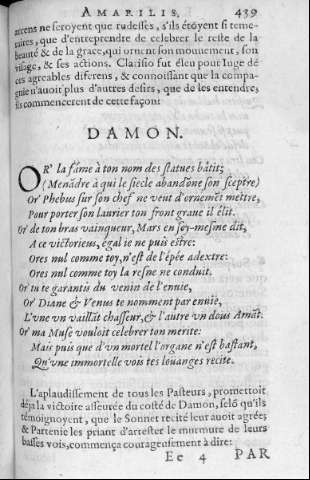 AMARILIS. 439
accens ne seroyent que rudesses, s'ils étoyent si teme-
raires, que d'entreprendre de celebrer le reste de la
beauté & de la grace, qui ornent son mouuement, son
visage, & ses actions. Clarisio fut éleu pour Iuge de
ces agreables diferens, & connoissant que la compa-
gnie n'auoit plus d'autres desirs, que de les entendre,
ils commencerent de cette façon:
DAMON.
OR' la fáme à ton nom des statues bâtit;
(Menádre à qui le siecle abandōne son sceptre)
Or' Phebus sur son chef ne veut d'ornemēt mettre,
Pour porter son laurier ton front graue il élit.
Or' de ton bras vainqueur, Mars en soy-mesme dit,
A ce victorieus, égal ie ne puis estre:
Ores nul comme toy, n'est de l'épée adextre:
Ores nul comme toy la resne ne conduit.
Or' tu te garantis du venin de l'enuie,
Or' Diane & Venus te nomment par enuie,
L'vne vn vaillāt chasseur, & l'autre vn dous Amāt.
Or' ma Muse vouloit celebrer ton merite:
Mais puis que d'vn mortel l'organe n'est bastant,
Qu'vne immortelle vois tes loüanges recite.
L'aplaudissement de tous les Pasteurs, promettoit
déja la victoire asseurée du costé de Damon, selō qu'ils
témoignoyent, que le Sonnet recité leur auoit agreé;
& Partenie les priant d'arrester le murmure de leurs
basses vois, commença courageusement à dire:
Ee 4 PAR